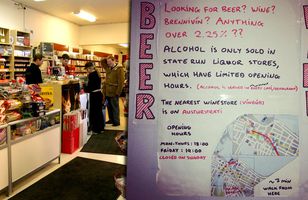 BEER
LOOKING FOR BEER? WINE?
BRENNIVÍN? ANYTHING
OVER 2.25% ??
ALCOHOL IS ONLY SOLD IN
STATE RUN LIQUOR STORES,
WHICH HAVE LIMITED OPENING
HOURS. (ALCOHOL IS SERVED IN EVERY CAFE/RESTAURANT)
THE NEAREST WINESTORE (VÍNBÚÐ)
IS ON AUSTURSTRÆTI
OPENING
HOURS
MON-THURS: 18:00
FRIDAY: 19:00
CLOSED ON SUNDAY
~ 7 MIN
WALK FROM
HERE